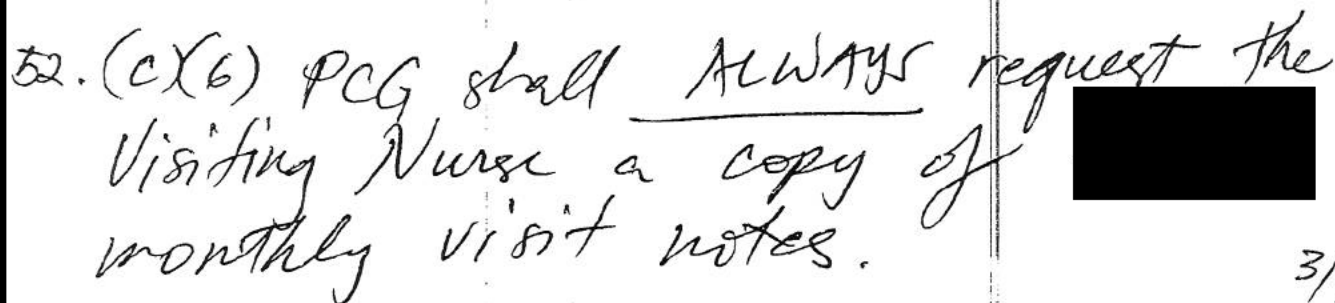 52. (c)(6) PCG shall ALWAYS request the
Visiting Nurse a copy of
monthly visit notes.
3/